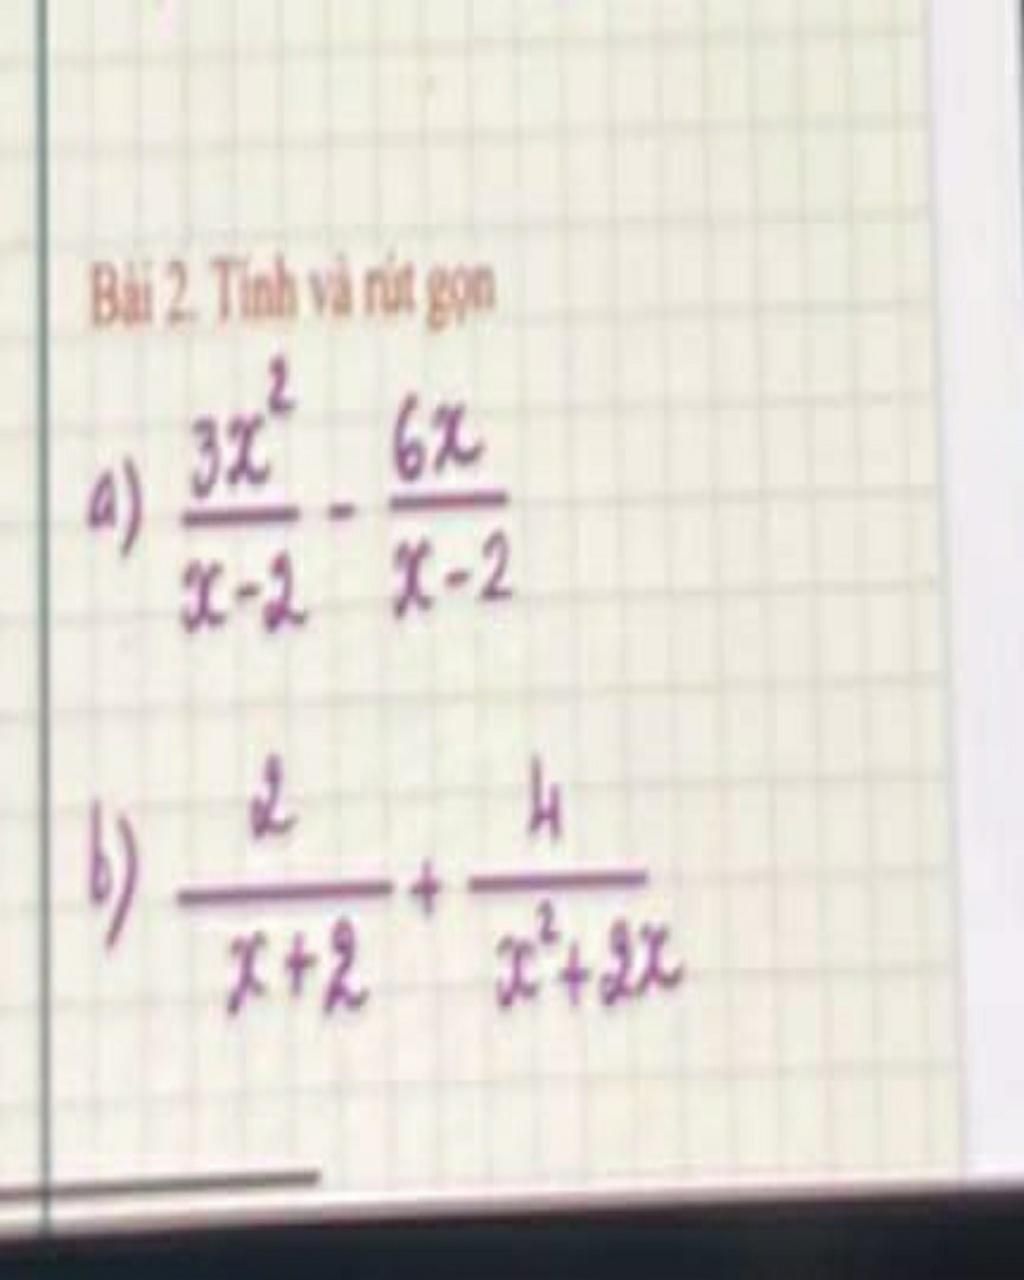 Bài 2. Tính và rút gọn
a) 3x²/(x-2) - 6x/(x-2)
b) 2/(x+2) + 4/(x²+2x)